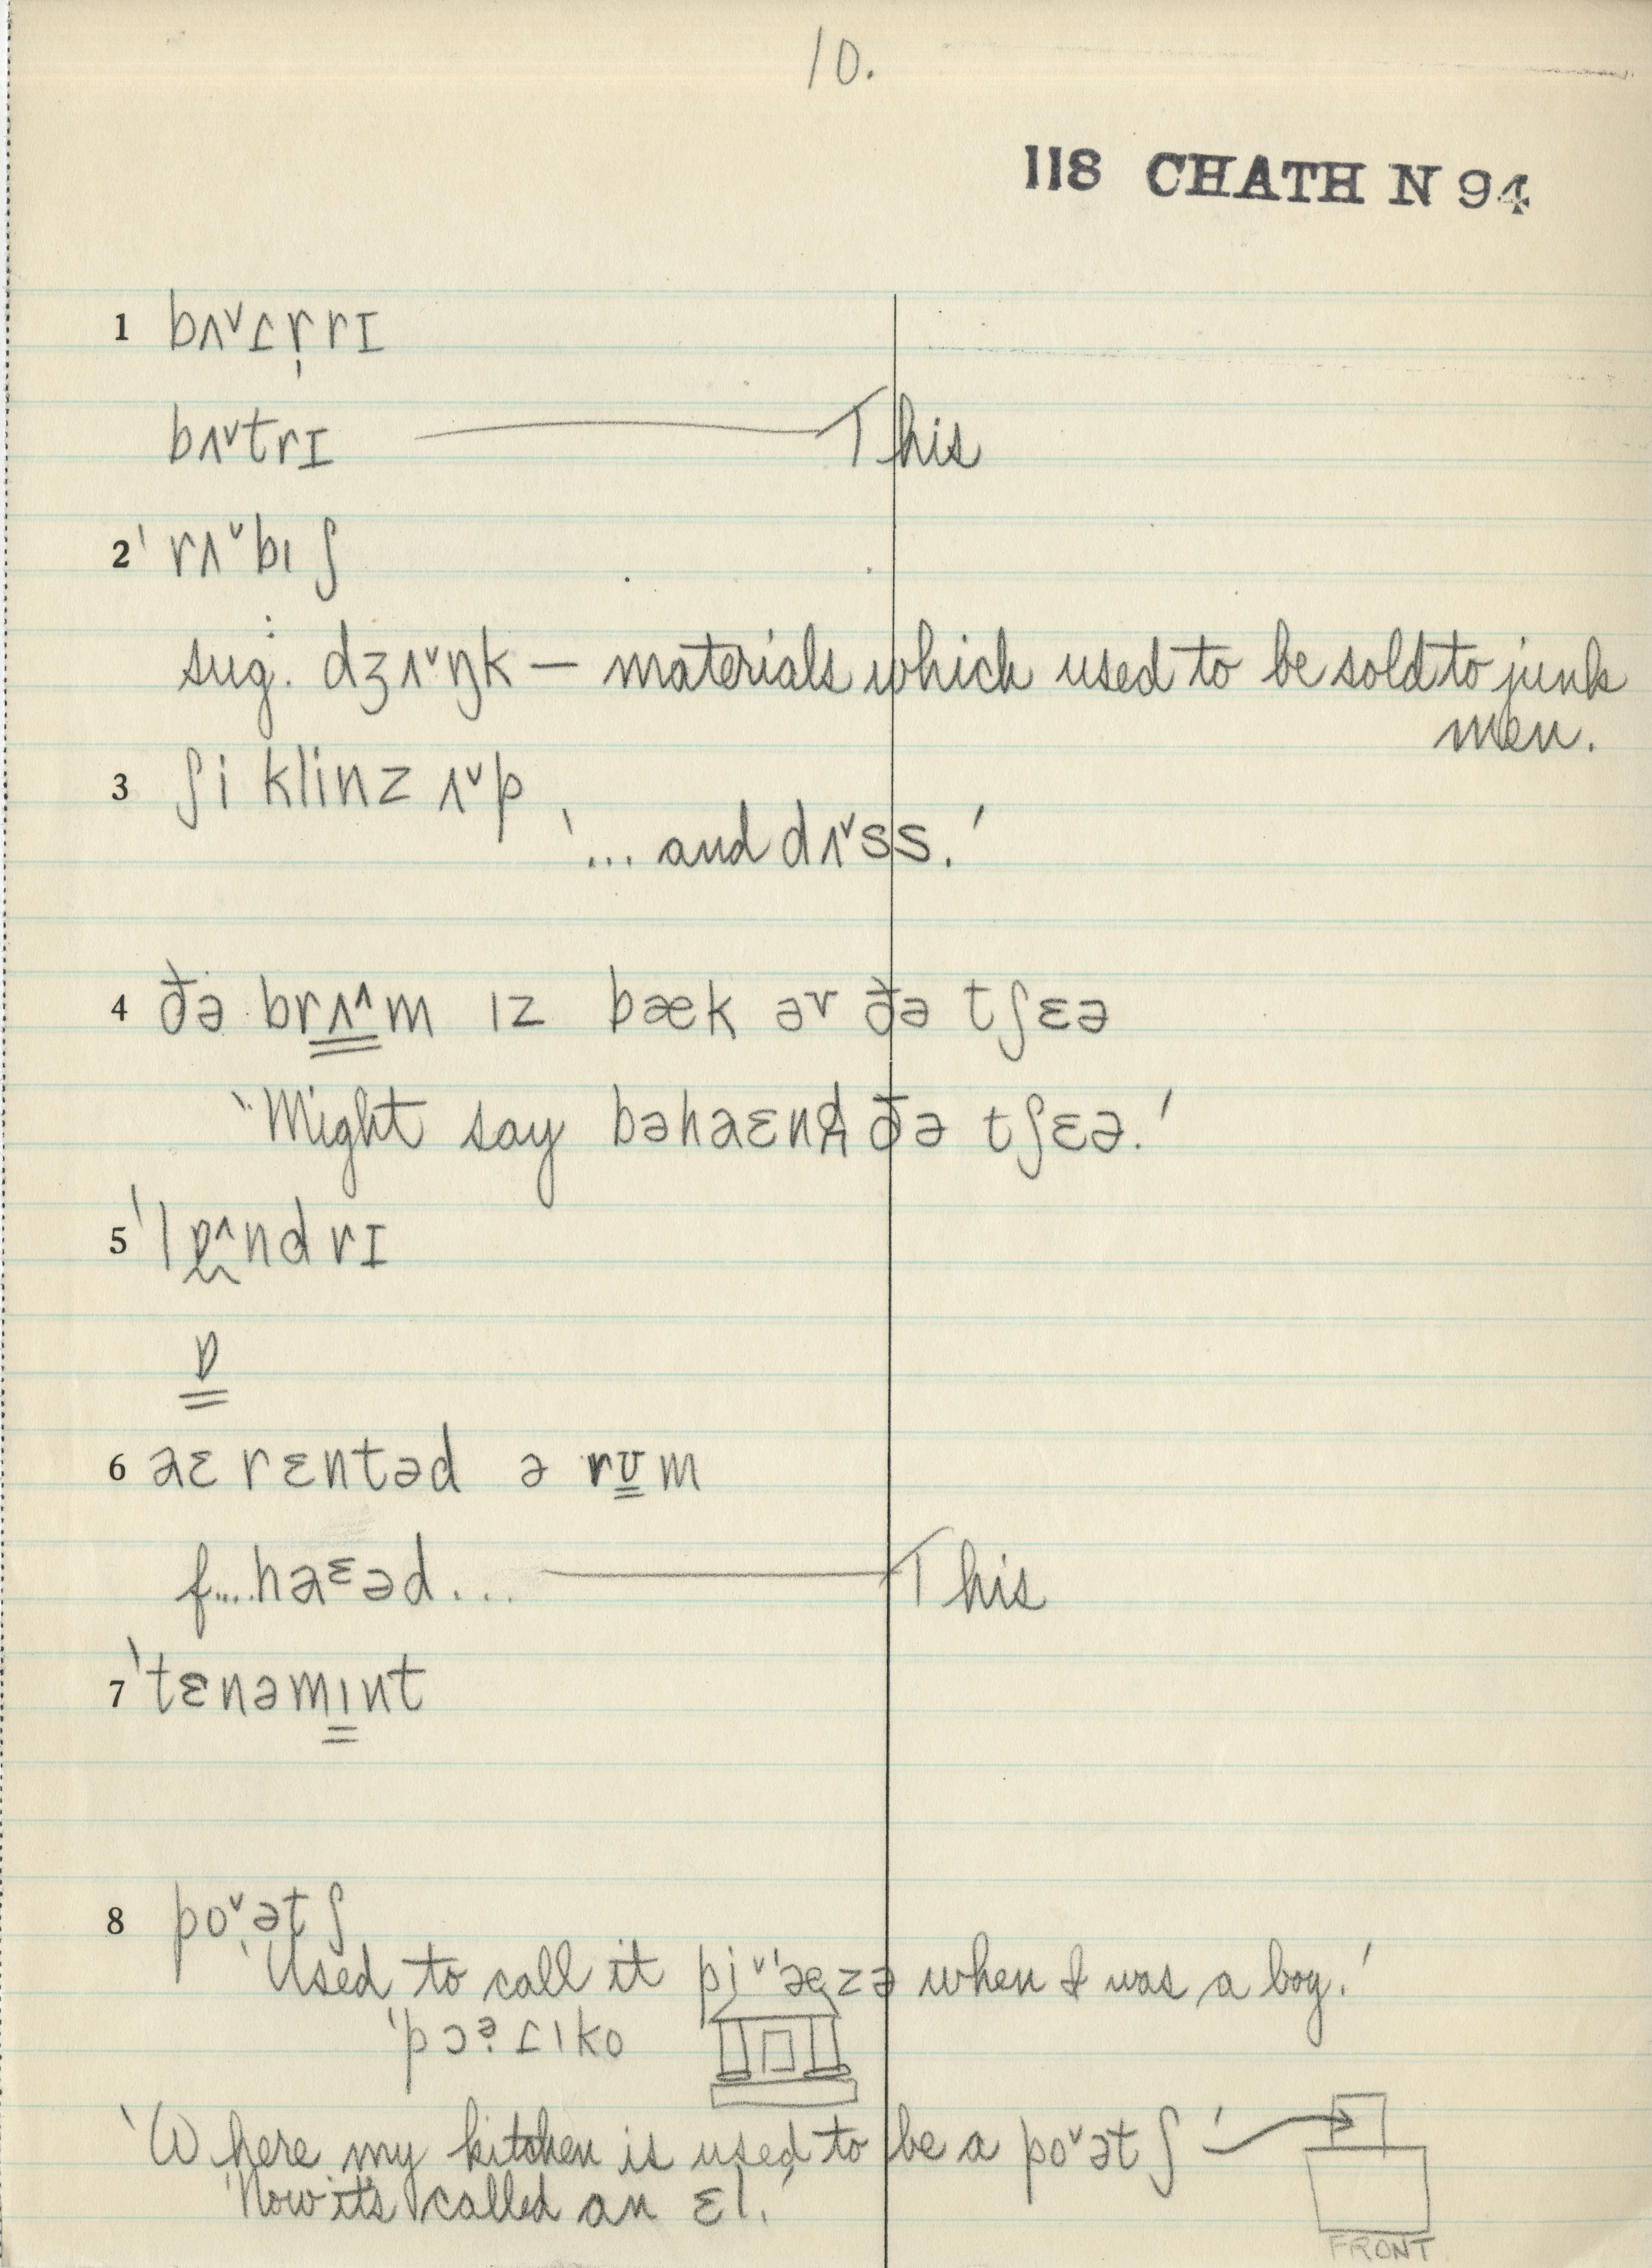 10.
118 CHATH N 94
1 bʌ˅ɾr̩rɪ
bʌ˅trɪ — This
2 'rʌ˅bıʃ
sug. : dʒʌ˅ŋk — materials which used to be sold to junk
men.
3 ʃi klinz ʌ˅p
'... and dʌ˅ss.'
4 ðə brʌ˄m ız bæk əv ðə tʃɛə
'Might say bəhaɛnd ðə tʃɛə.'
5 'lɒ˄ndrɪ
ɒ
6 aɛ rɛntəd ə rʊm
f....haɛəd... — This
7 'tɛnəmınt
8 po˅ətʃ
'Used to call it pi˅'æzə when I was a boy.'
'pɔəɾıko
'Where my kitchen is used to be a po˅ətʃ'
'Now it's called an ɛl.'
FRONT